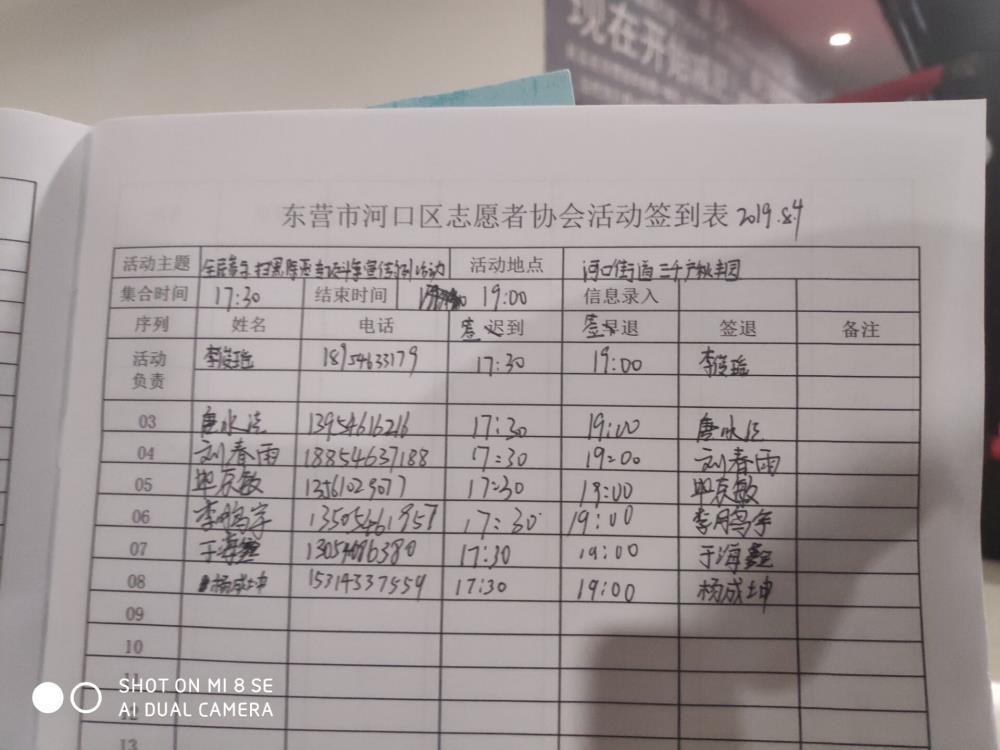 现在开始减肥
东营市河口区志愿者协会活动签到表 2019.8.4
活动主题 扫黑除恶 活动 活动地点 河口街道三千户桃丰园
集合时间 17:30 结束时间 19:00 信息录入
序列 姓名 电话 签迟到 签早退 签退 备注
活动负责 李俊瑶 18954633179 17:30 19:00 李俊瑶
03 唐水法 13954616216 17:30 19:00 唐水法
04 刘春雨 18854637188 17:30 19:00 刘春雨
05 17:30 19:00
06 李鹏宇 13505461957 17:30 19:00 李鹏宇
07 于海鑫 13054086380 17:30 19:00 于海鑫
08 杨成坤 15314337559 17:30 19:00 杨成坤
09
10
11
12
13
SHOT ON MI 8 SE
AI DUAL CAMERA